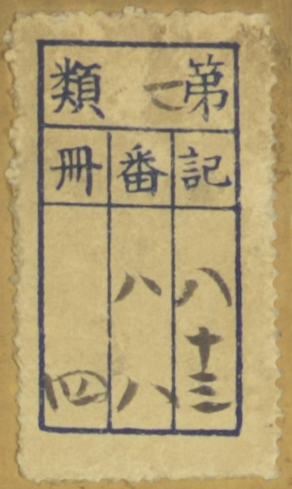 第二類
記 八十三
番 八八
冊 四